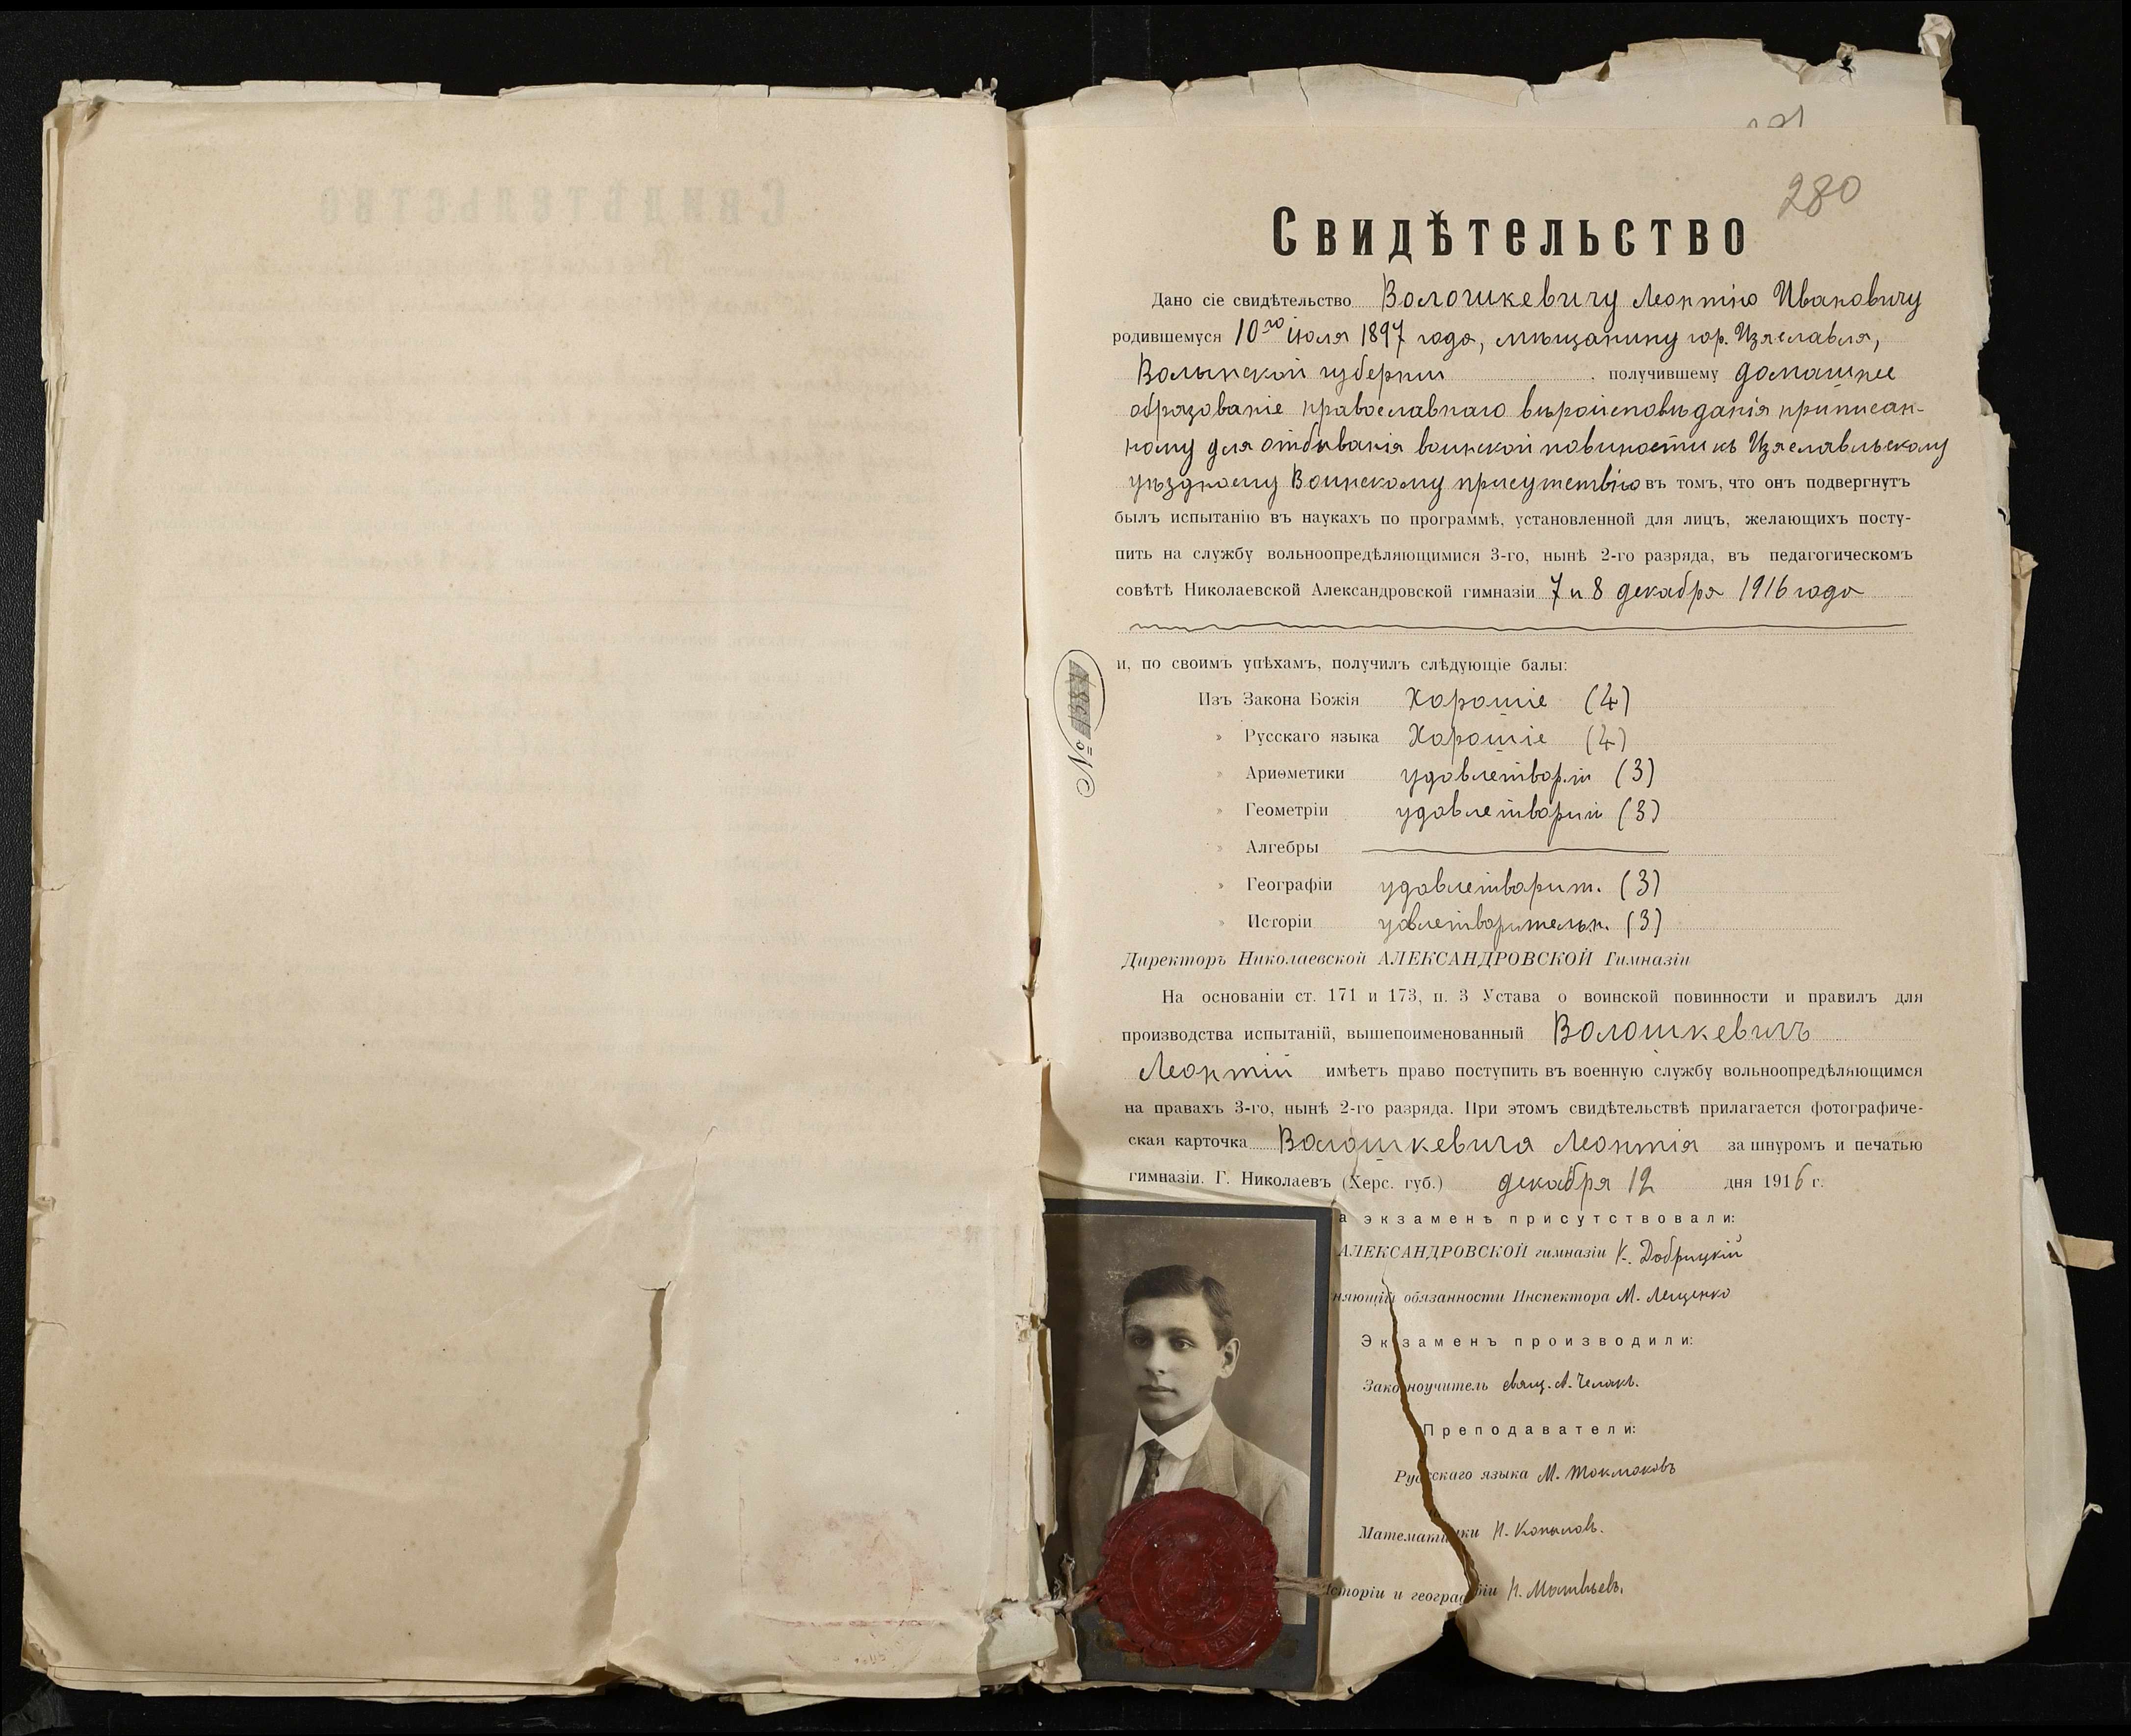 280
Свидѣтельство
Дано сіе свидѣтельство Волошкевичу Леонтію Ивановичу
родившемуся 10го іюля 1897 года, мѣщанину гор. Изяславля,
Волынской губерніи получившему домашнее
образованіе православнаго вѣроисповѣданія приписан-
ному для отбыванія воинской повиности къ Изяславльскому
уѣздному Воинскому присутствію въ томъ, что онъ подвергнутъ
былъ испытанію въ наукахъ по программѣ, установленной для лицъ, желающихъ посту-
пить на службу вольноопредѣляющимися 3-го, нынѣ 2-го разряда, въ педагогическомъ
совѣтѣ Николаевской Александровской гимназіи 7 и 8 декабря 1916 года
и, по своимъ успѣхамъ, получилъ слѣдующіе балы:
№ 1384
Изъ Закона Божія Хорошіе (4)
» Русскаго языка Хорошіе (4)
» Ариѳметики удовлетвор.ит (3)
» Геометріи удовлетворит (3)
» Алгебры
» Географіи удовлетворит. (3)
» Исторіи удовлетворительн. (3)
Директоръ Николаевской АЛЕКСАНДРОВСКОЙ Гимназіи
На основаніи ст. 171 и 173, п. 3 Устава о воинской повинности и правилъ для
производства испытаній, вышепоименованный Волошкевичъ
Леонтій имѣетъ право поступить въ военную службу вольноопредѣляющимся
на правахъ 3-го, нынѣ 2-го разряда. При этомъ свидѣтельствѣ прилагается фотографиче-
ская карточка Волошкевича Леонтія за шнуромъ и печатью
гимназіи. Г. Николаевъ (Херс. губ.) декабря 12 дня 1916 г.
а экзаменѣ присутствовали:
АЛЕКСАНДРОВСКОЙ гимназіи К. Добрицкій
няющій обязанности Инспектора М. Лещенко
Экзаменъ производили:
Законоучитель свящ. А.
Преподаватели:
Русскаго языка М. Токмаковъ
Математики Н. Копыловъ.
Исторіи и географіи Н. Матвѣевъ.